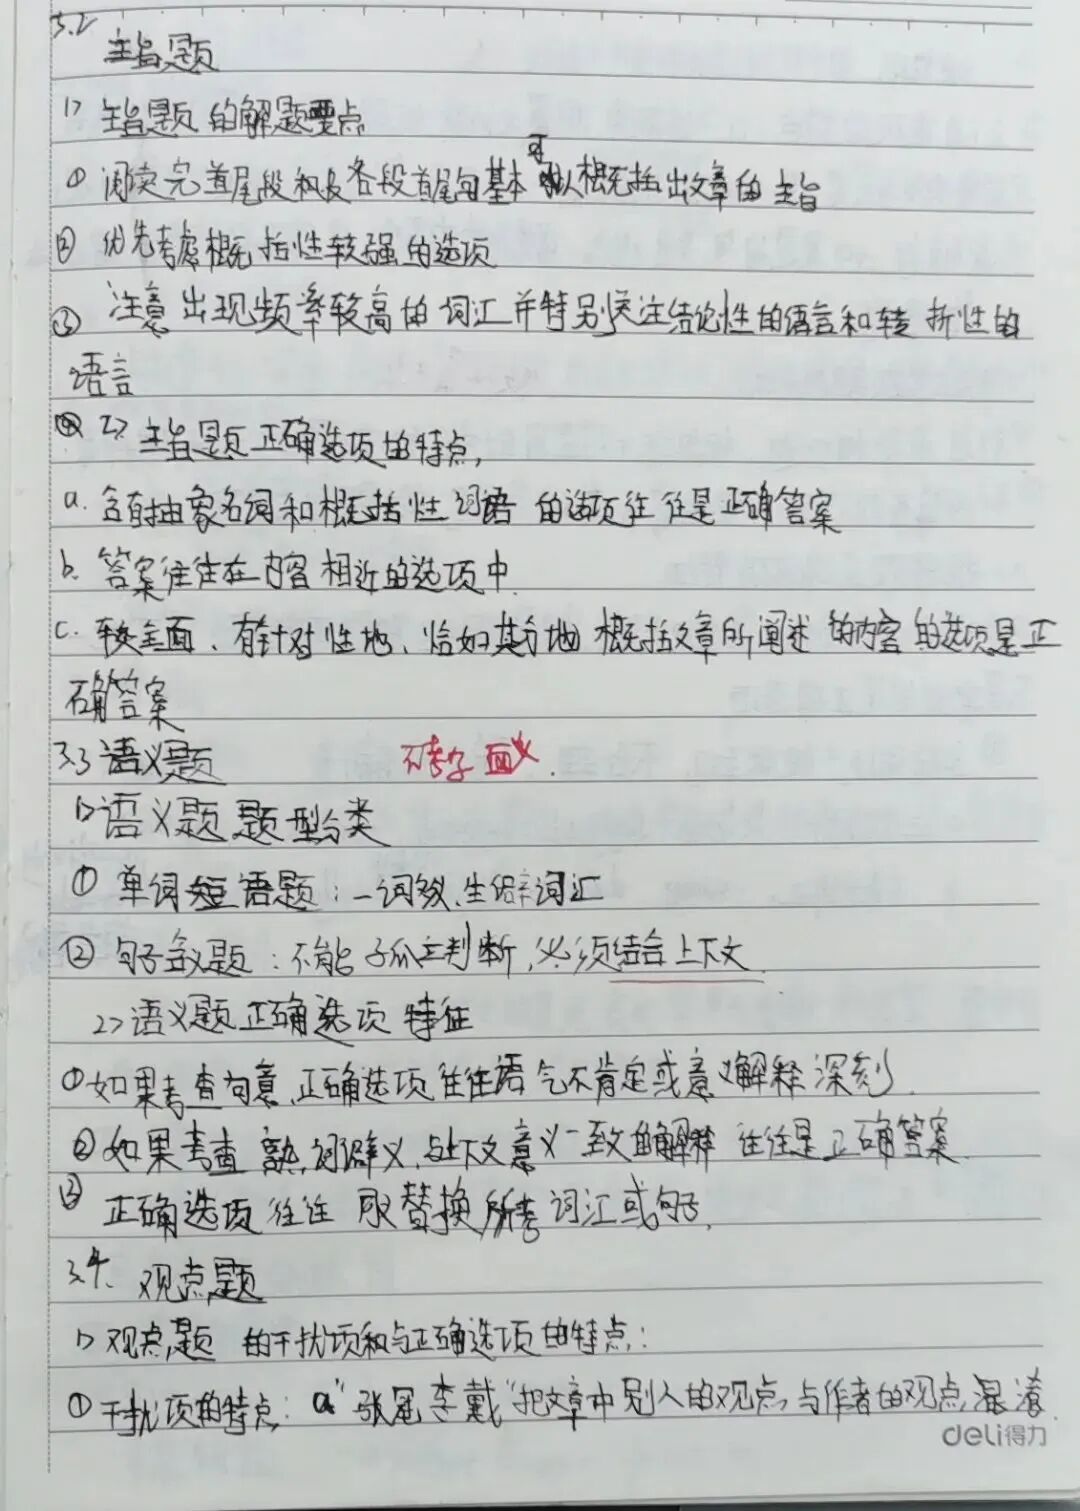 3.2
主旨题
1> 主旨题的解题要点
① 阅读完首尾段和及各段首尾句基本可以概括出文章的主旨
② 优先考虑概括性较强的选项
③ 注意出现频率较高的词汇并特别关注结论性的语言和转折性的
语言
2> 主旨题正确选项的特点,
a. 含有抽象名词和概括性词语的选项往往是正确答案
b. 答案往往在内容相近的选项中
c. 较全面、有针对性地、恰如其分地概括文章所阐述的内容的选项是正
确答案
3.3 语义题 不考字面义.
1> 语义题题型分类
① 单词短语题:一词多义、生僻词汇
② 句子含义题:不能孤立判断,必须结合上下文
2> 语义题正确选项特征
① 如果考查句意,正确选项往往语气不肯定或意义解释深刻.
② 如果考查熟词僻义,与上下文意义一致的解释往往是正确答案.
③ 正确选项往往可替换所考词汇或句子,
3.4. 观点题
1> 观点题的干扰项和与正确选项的特点:
① 干扰项的特点: a"张冠李戴"把文章中别人的观点与作者的观点混淆
deli得力